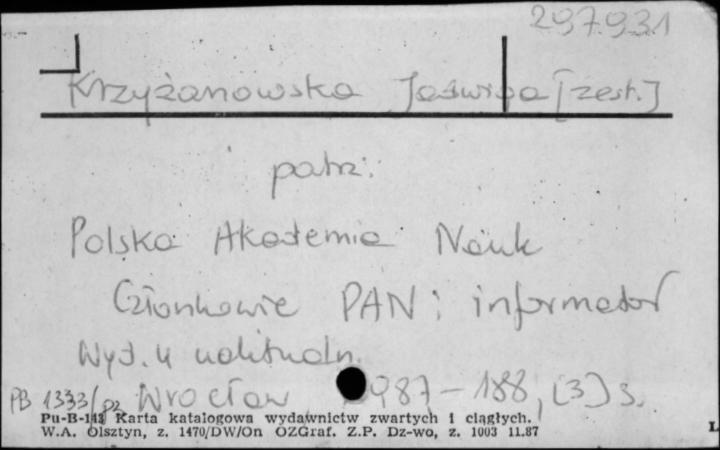 297931
Krzyżanowska Jadwiga [zest.]
patrz:
Polska Akademia Nauk
Członkowie PAN : informator
Wyd. 4 uaktualn.
PB 1333/ Wrocław 1987 – 188, [3] s.
Pu-B-143 Karta katalogowa wydawnictw zwartych i ciągłych.
W.A. Olsztyn, z. 1470/DW/On OZGraf. Z.P. Dz-wo, z. 1003 11.87